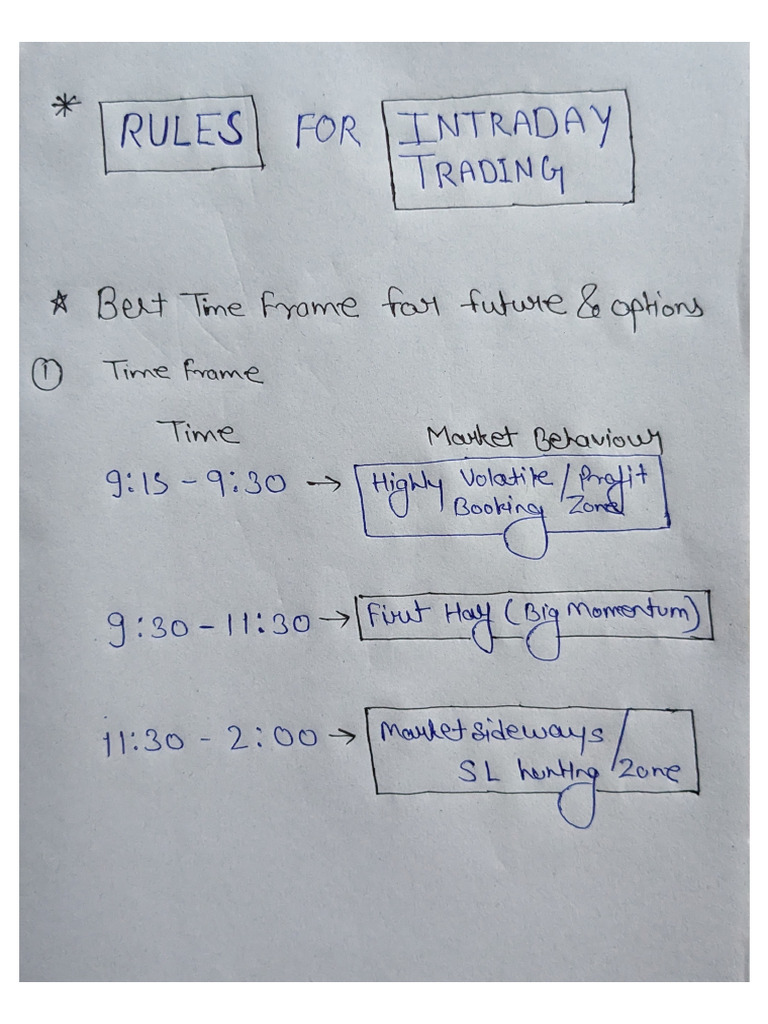 * RULES FOR INTRADAY
TRADING
☆ Best Time Frame for future & options
① Time frame
Time Market Behaviour
9:15 - 9:30 → Highly Volatile / Profit
Booking Zone
9:30 - 11:30 → First Half (Big Momentum)
11:30 - 2:00 → Market sideways /
SL hunting Zone